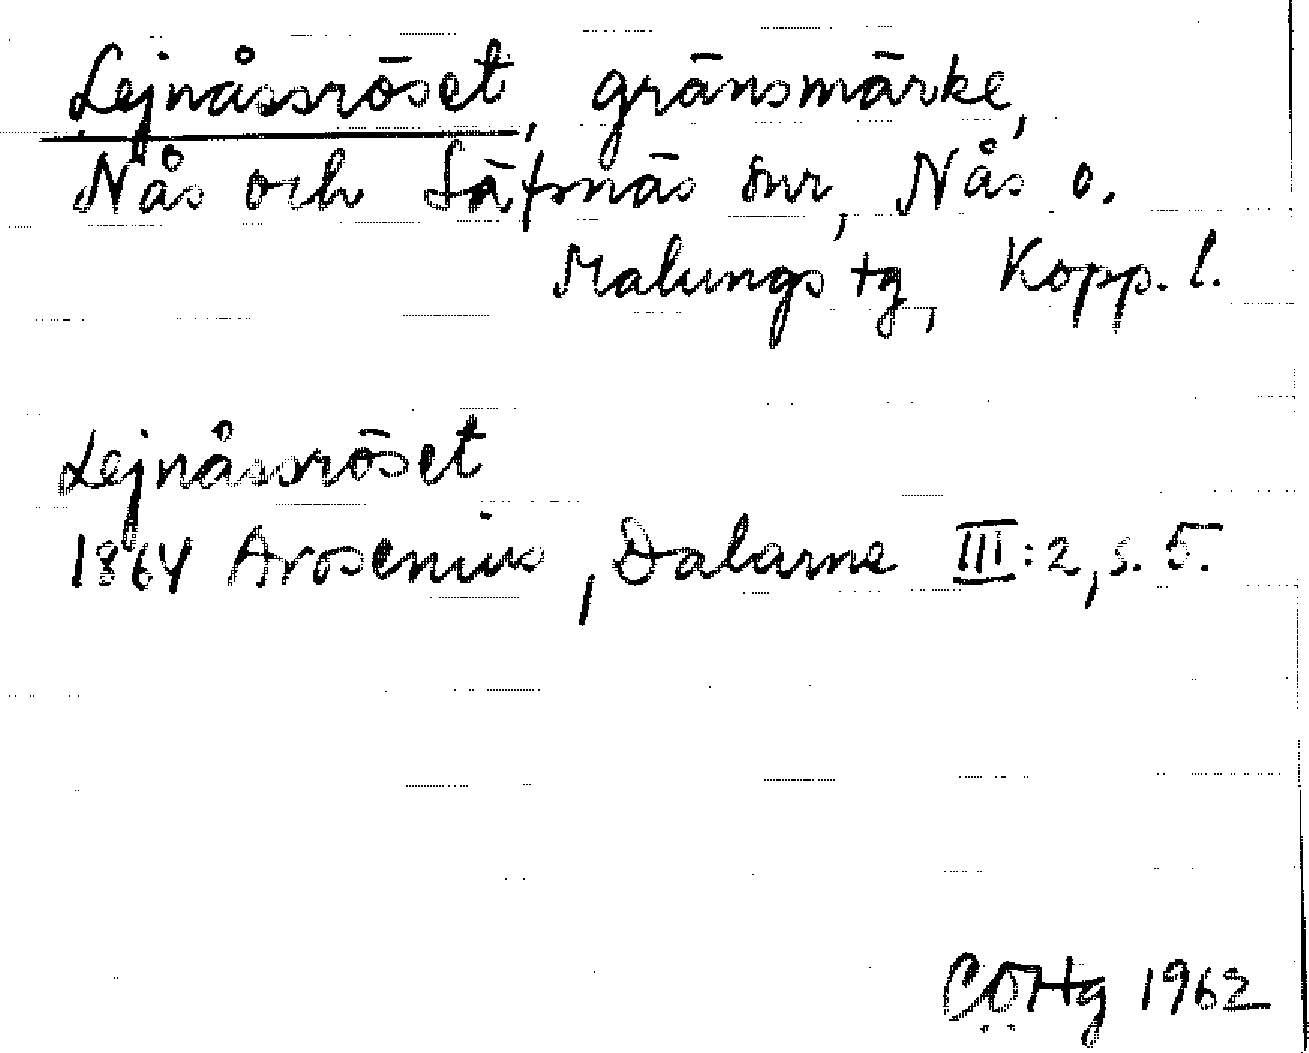 Lejnåssröset, gränsmärke,
Nås och Säfsnäs snr, Nås o.
Malungs tg, Kopp. l.
Lejnåssröset
1864 Arosenius, Dalarne III:2, s. 5.
CÖHg 1962